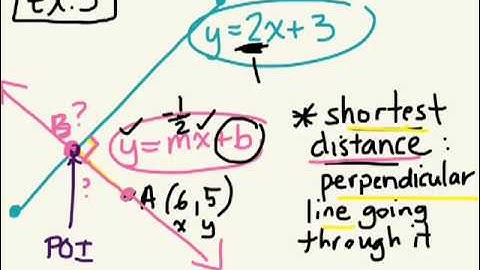 Ex. 3
y = 2x + 3
1
B ?
-1/2
y = mx + b
?
A (6, 5)
x y
POI
* shortest
distance :
perpendicular
line going
through it